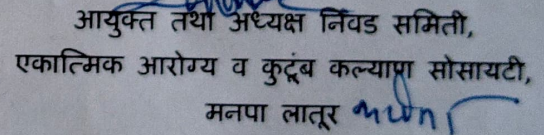 आयुक्त तथा अध्यक्ष निवड समिती,
एकात्मिक आरोग्य व कुटूंब कल्याण सोसायटी,
मनपा लातूर